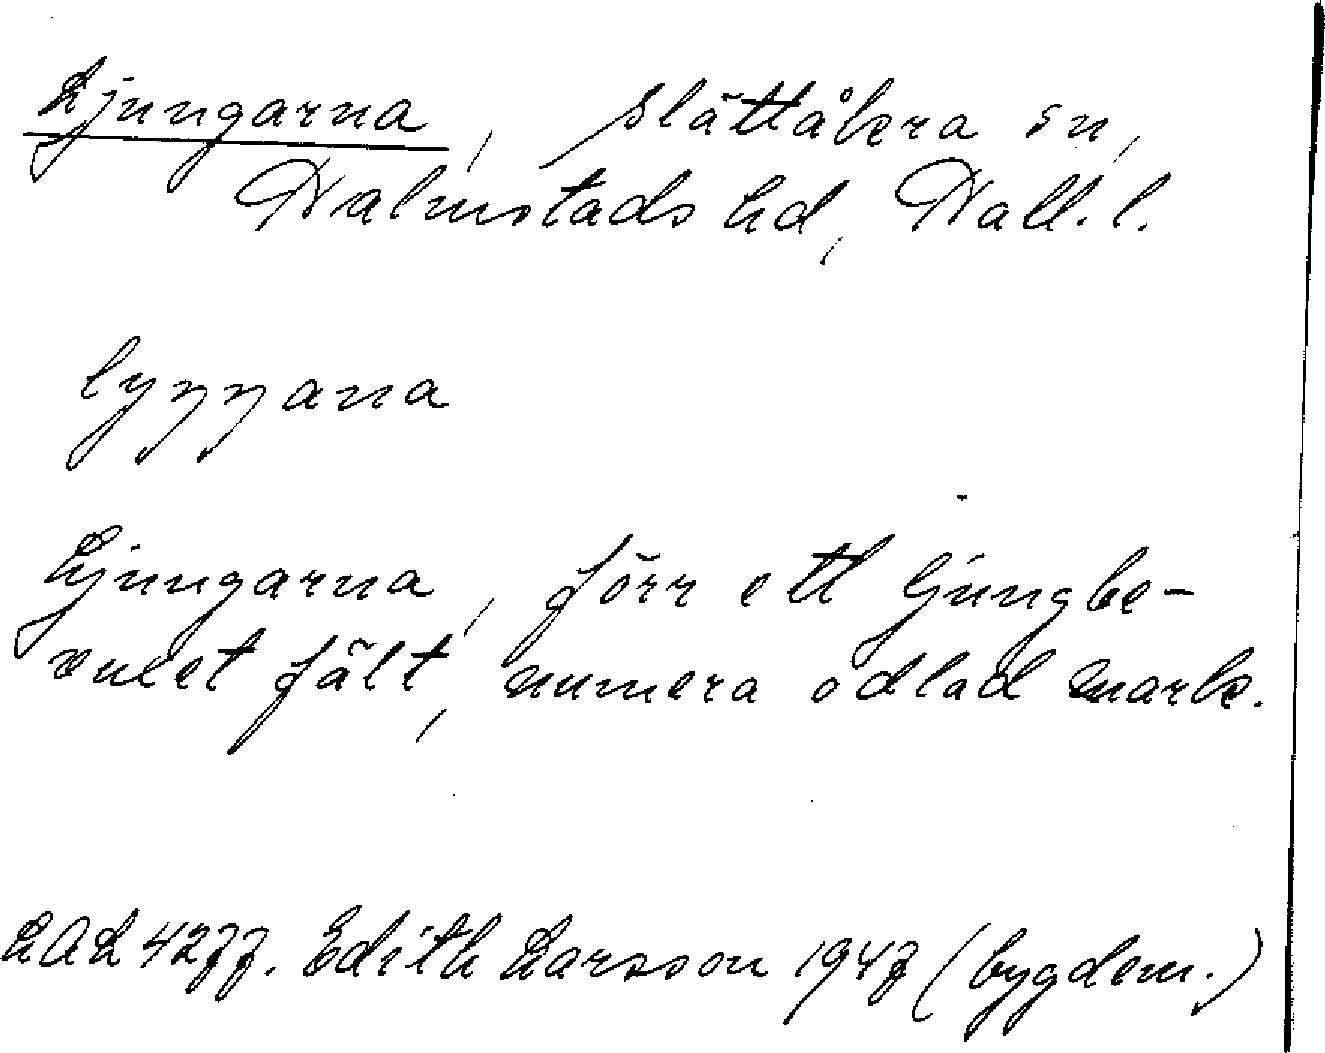 Ljungarna, Slättåkra sn,
Halmstads hd, Hall. l.
lyŋŋana
Ljungarna, förr ett ljungbe-
vuxet fält, numera odlad mark.
LAL 4277. Edith Larsson 1947 (bygdem.)